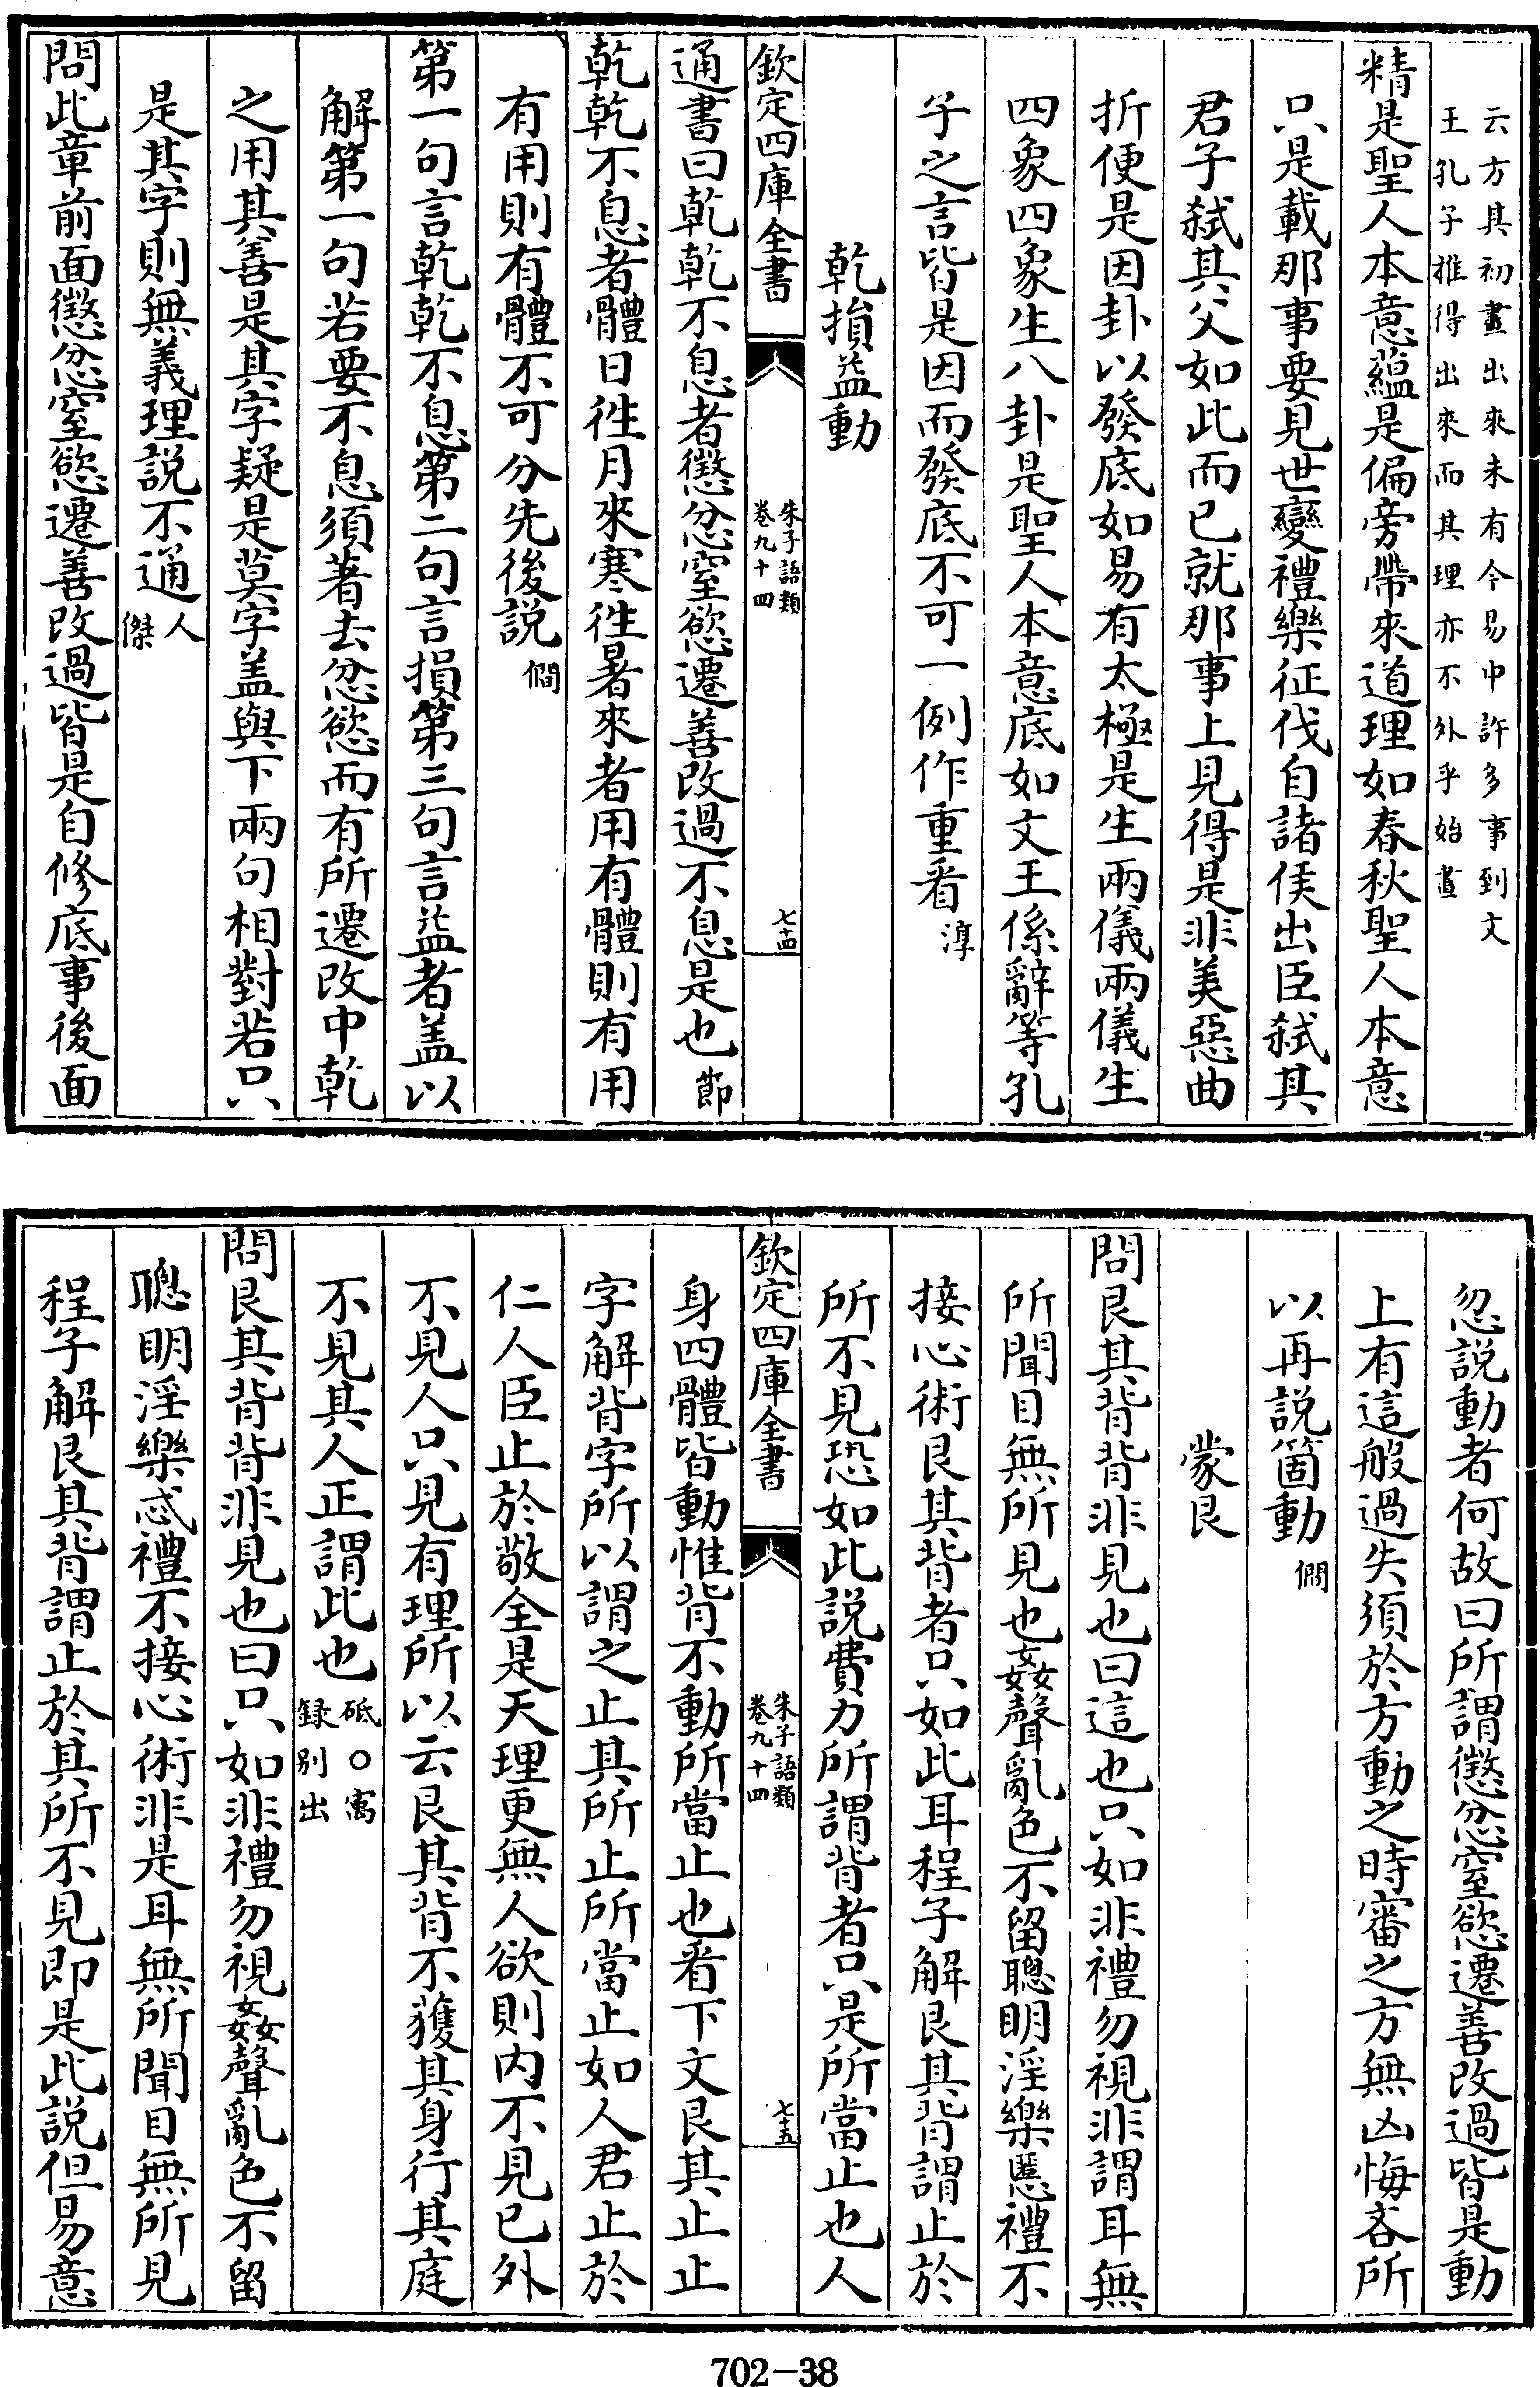 云方其初畫出來未有今易中許多事到文
王孔子推得出來而其理亦不外乎始畫
精是聖人本意蘊是偏旁帶來道理如春秋聖人本意
只是載那事要見世變禮樂征伐自諸侯出臣弑其
君子弑其父如此而已就那事上見得是非美惡曲
折便是因卦以發底如易有太極是生兩儀兩儀生
四象四象生八卦是聖人本意底如文王係辭等孔
子之言皆是因而發底不可一例作重看淳
乾損益動
欽定四庫全書
朱子語類
卷九十四
七十四
通書曰乾乾不息者懲忿窒慾遷善改過不息是也節
乾乾不息者體日徃月來寒徃暑來者用有體則有用
有用則有體不可分先後説僩
第一句言乾乾不息第二句言損第三句言益者盖以
解第一句若要不息須著去忿慾而有所遷改中乾
之用其善是其字疑是莫字盖與下兩句相對若只
是其字則無義理説不通人
傑
問此章前面懲忿窒慾遷善改過皆是自修底事後面
忽説動者何故曰所謂懲忿窒慾遷善改過皆是動
上有這般過失須於方動之時審之方無凶悔吝所
以再説箇動僩
蒙艮
問艮其背背非見也曰這也只如非禮勿視非謂耳無
所聞目無所見也姦聲亂色不留聰明淫樂慝禮不
接心術艮其背者只如此耳程子解艮其背謂止於
所不見恐如此説費力所謂背者只是所當止也人
欽定四庫全書
朱子語類
卷九十四
七十五
身四體皆動惟背不動所當止也看下文艮其止止
字解背字所以謂之止其所止所當止如人君止於
仁人臣止於敬全是天理更無人欲則内不見已外
不見人只見有理所以云艮其背不獲其身行其庭
不見其人正謂此也砥○㝢
録别出
問艮其背背非見也曰只如非禮勿視姦聲亂色不留
聰明淫樂忒禮不接心術非是耳無所聞目無所見
程子解艮其背謂止於其所不見即是此説但易意
702-38